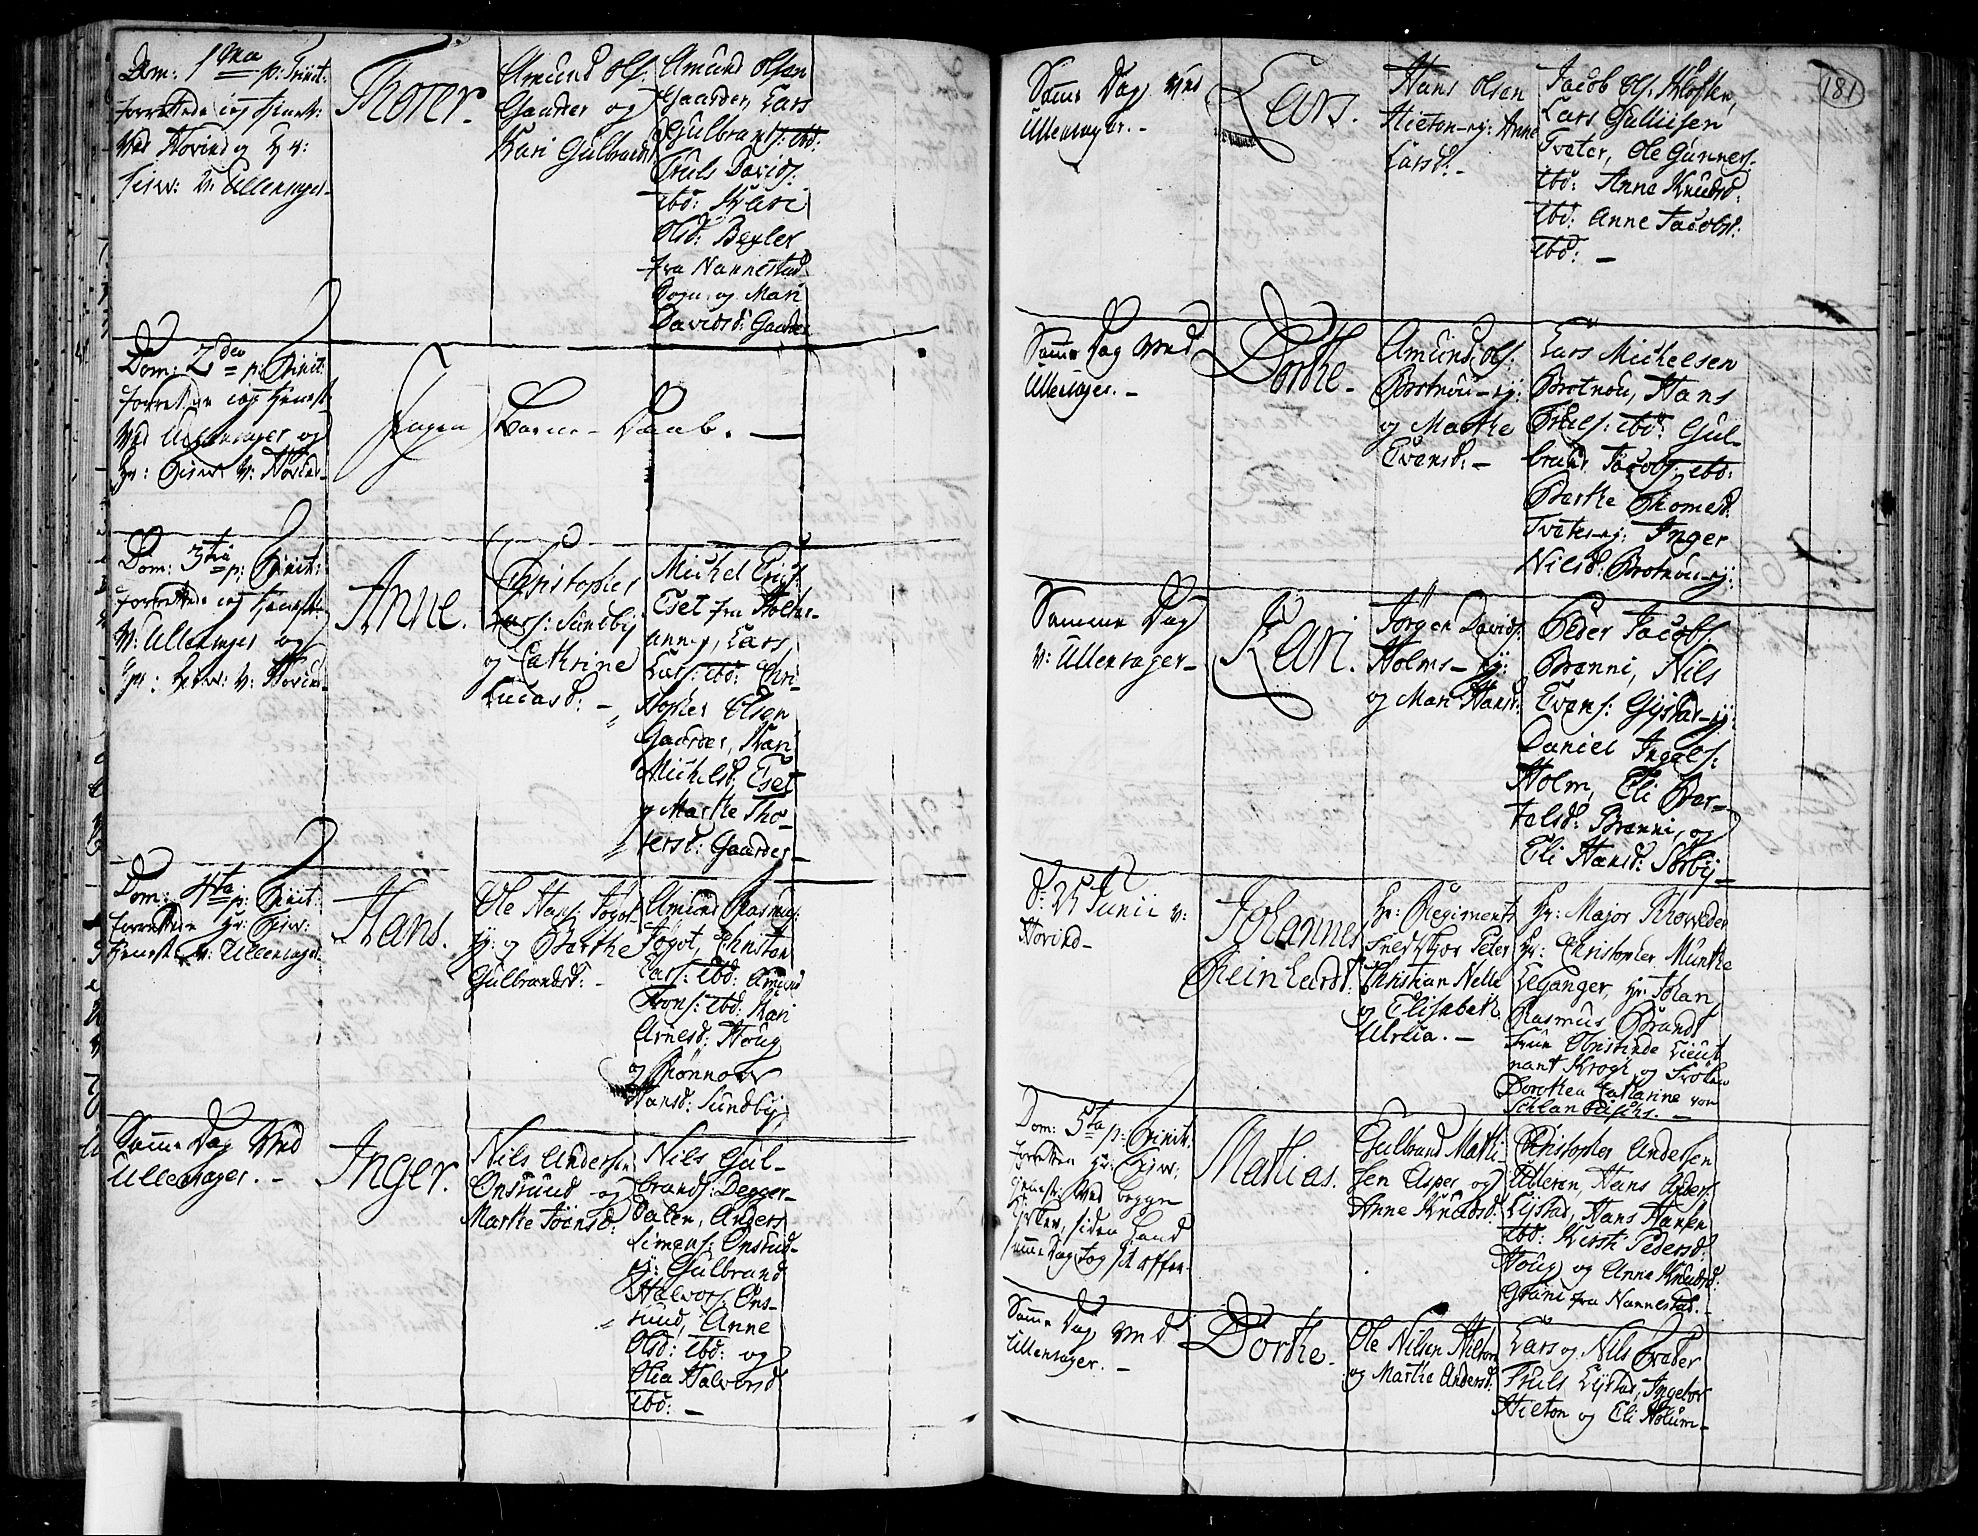 Dom: 1ma p: Trinit:
forrettede jeg tienest:
Ved Hovind og Hr:
V: Ullensager-
Thorer.
Amund Ols:
Gaarder og
Kari Gulbrandsd
Amund Olsen
Gaarder, Lars
Gulbrands: ibd:
Truls Davids:
ibd: Kari
Olsd: Bexler
fra Nannestad
Sogn, og Mari
Davidsd: Gaarder
Dom: 2den p: Trinit:
forrettede jeg tienest
Ved Ullensager og
Hr: V: Hovind-
Ingen Barne-Daab. —
Dom: 3tia p: Trinit:
forrettede jeg tienest:
V: Ullensager og
Hr: V: Hovind
Anne.
Christopher
Lars: Sundby
og Cathrine
Lucasd: -
Michel Erics:
Eset fra Holter
annex, Lars
Lars: ibd: Chri-
stopher Olsen
Gaarder, Kari
Michelsd: Eset
og Marthe Tho-
rersd: Gaarder-
Dom: 4ta p: Trinit:
forrettede Hr:
tienest V: Ullensager
Hans.
Ole Hans: Fogot-
ej: og Barthe
Gulbrandsd: -
Amund Rasmus:
Fogot, Christen
Lars: ibd: Amund
Trons: ibd: Kari
Arnesd: Houg
og Rønnow
Hansd: Sundby
Samme Dag Ved
Ullensager. -
Inger.
Nils Andersen
Onsrud og
Marthe Joensd:
Nils Gul-
brands: Degger-
dalen, Anders
Simens: Onsrud-
ej: Gulbrand
Halvors: Ons-
rud, Anne
Olsd: ibd: og
Olia Halvorsd
ibd: -
181
Samme Dag Ved
Ullensager. -
Lars.
Hans Olsen
Hilton-ej: Anne
Larsd: -
Jacob Ols: Kløften,
Lars Gulliksen
Tveter, Ole Gunners:
ibd: Anne Knudsd:
ibd: Anne Jacobsd:
ibd: -
Samme Dag Ved
Ullensager. -
Dorthe-
Amund Ols:
Brotnou-ej:
og Marthe
Evensd: -
Lars Michelsen
Brotnou, Hans
Truls: ibd: Gul-
brand Jacobs: ibd:
Barthe Thomesd:
Tveter-ej: Inger
Nilsd: Brotnou-ej:
Samme Dag
V: Ullensager-
Kari.
Jørgen Davids:
Holms-ej:
og Mari Hansd:
Peder Jacobs:
Brenni, Nils
Evens: Gystad-ej:
Daniel Ingels:
Holm, Eli Bar-
talsd: Brenni, og
Eli Hansd: Sørby-
D: 25 Junii V:
Hovind-
Johannes
Reinhardt.
Hr: Regiments
Feldskjær Peter
Christian Nelle
og Elisabeth
Ulria. -
Hr: Major
Hr: Christopher Munthe
Leganger, Hr: Johan
Rasmus Brandt
Frue Obristinde Lieut
nant Krogh og Frøken
Dorothea Catharine von
Schlanbusch. -
Dom: 5ta p: Trinit:
forrettede Hr:
tienest: Ved begge
Kirker, siden hand
samme Dag tog
Mathias.
Gulbrand Mathi-
sen Asper og
Anne Knudsd:
Christopher Andersen
Ulleren, Hans Anders:
Lystad, Hans Hansen
ibd: Kirsti Pedersd:
Houg og Anne Knudsd:
Grani fra Nannestad. -
Samme Dag Ved
Ullensager. -
Dorthe-
Ole Nilsen Hilton
og Marthe Andersd:
Lars og Nils Tveter
Truls Lystad, Ingebor
Hilton og Eli Holum-